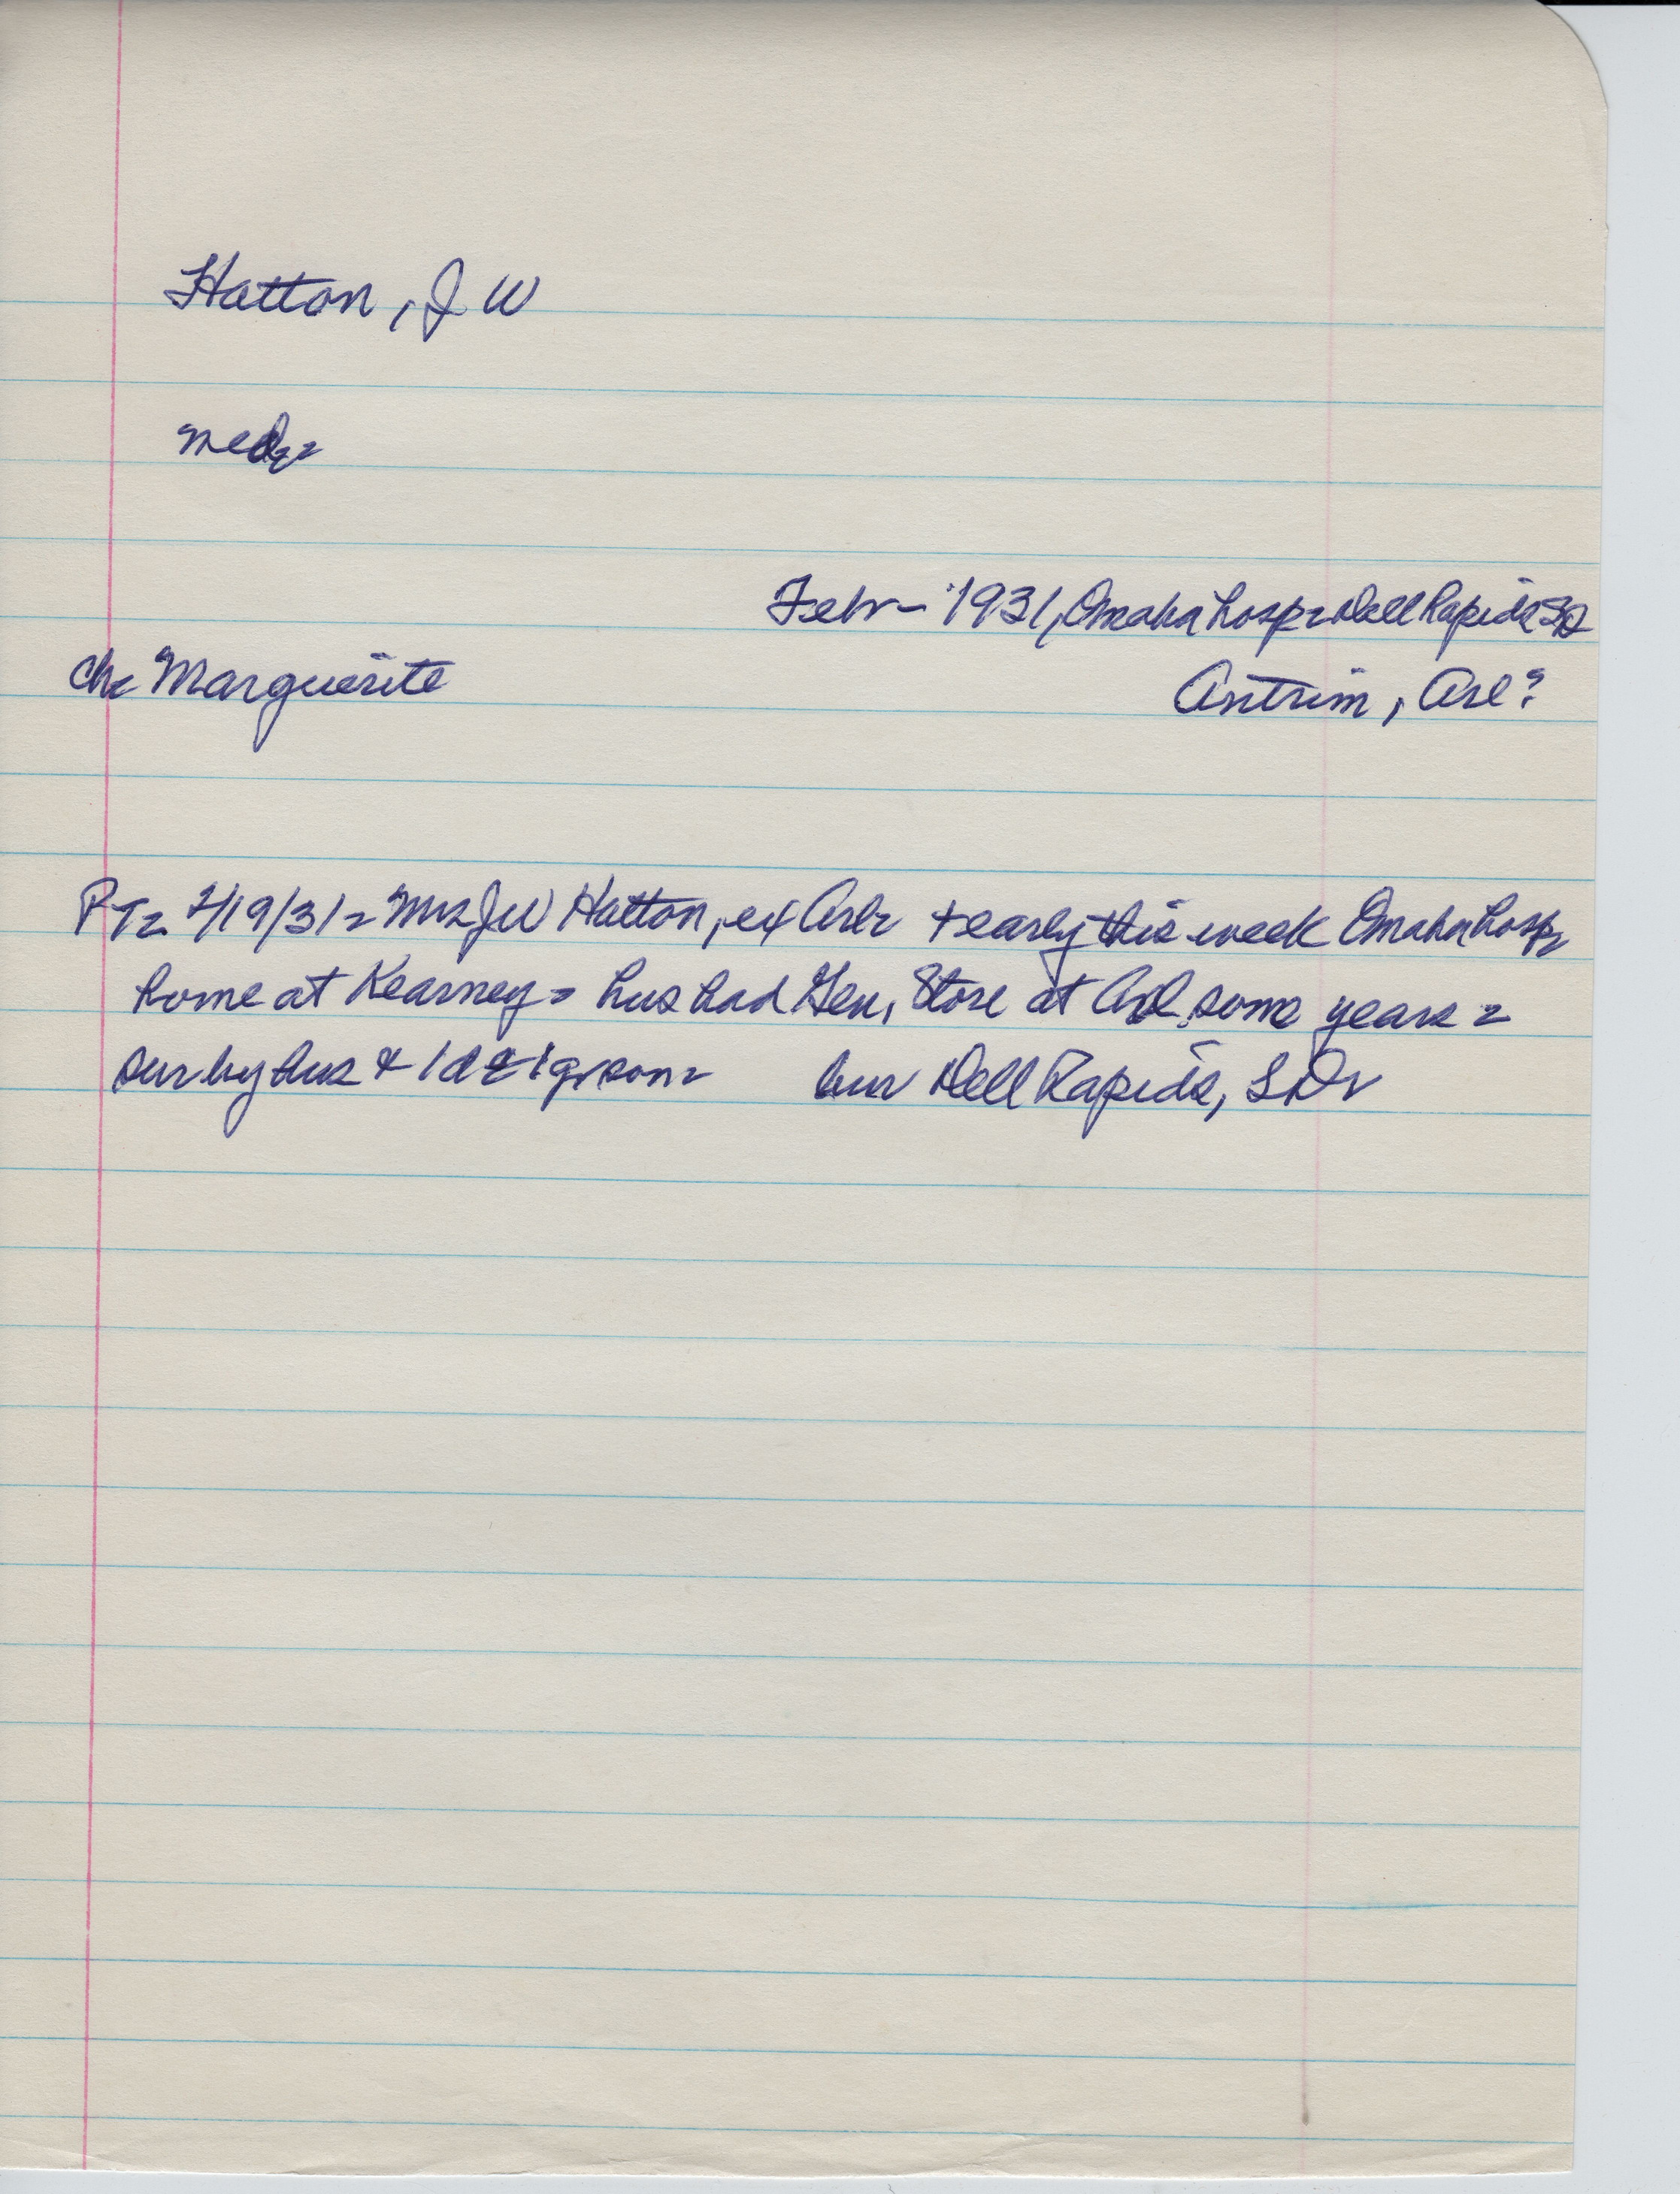 Hatton, J W
Febr - 1931, Omaha hosp - Dell Rapids SD
ch - Marguerite
Antrim, Arl?
PT - 2/19/31 - Mrs JW Hatton, ex Arl - + early this week Omaha hosp -
home at Kearney - hus had Gen. Store at Arl some years -
sur by hus + 1 d & 1 gr son - bur Dell Rapids, SD -